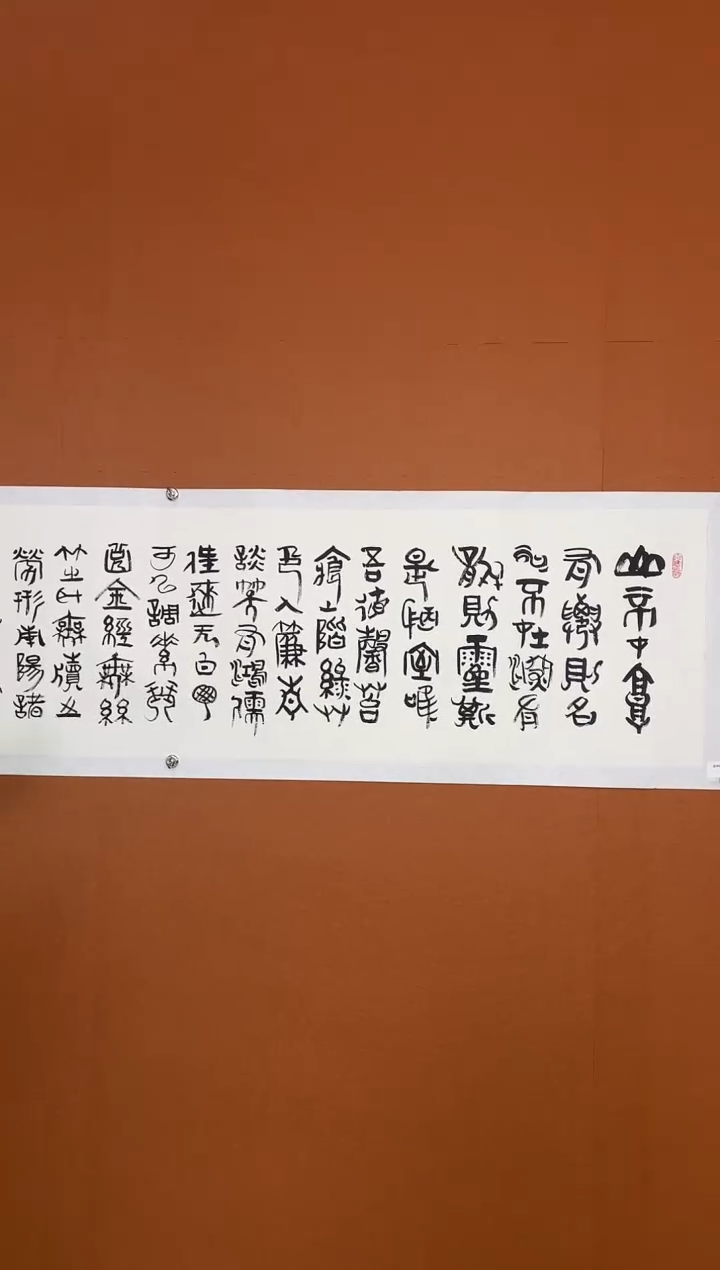 山不在高
有僊則名
水不在深有
龍則靈斯
是陋室唯
吾德馨苔
痕上階綠艸
色入簾青
談笑有鴻儒
往來无白
可以調素琴
閱金經無絲
竹之耳無牘之
勞形南陽諸